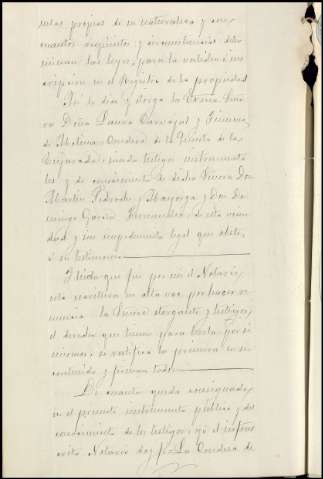 sulas propias de su naturaleza y con
cuantos requisitos y circunstancias deter
minan las leyes, para la validez é ins
cripcion en el Registro de la propiedad
Así lo dice y otorga la Excma Seño
ra Doña Laura Carvajal y Jimenez
de Molina Condesa de la Quinta de la
Enjarada siendo testigos instrumenta
les y de conocimiento de dicha Señora Don
Martin Pedrote y Mayorga y Don Do
mingo Garcia Fernandez de esta vecin
dad y sin impedimento legal que obste
á su testimonio
Y leida que fue por mi el Notario,
esta escritura en alta voz por haber re
nunciado la Señora otorgante y testigos,
el derecho que tienen para leerla por sí
mismos, se ratifica la primera en su
contenido y firman todos
De cuanto queda consignado,
en el presente instrumento público y del
conocimiento de los testigos, yo el infras
crito Notario doy fé. La Condesa de